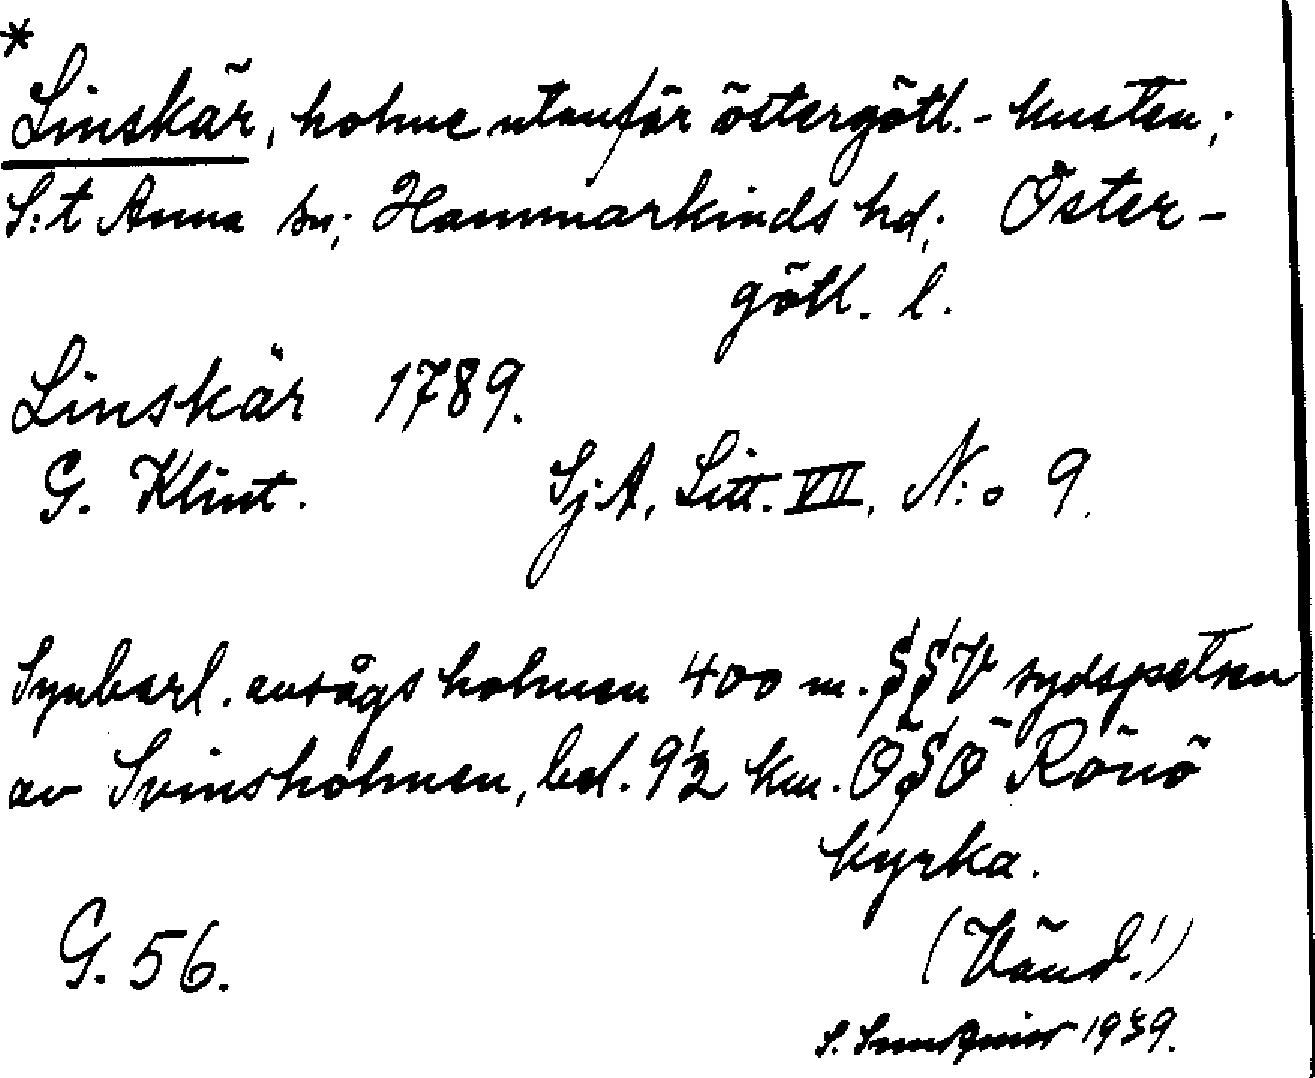 *
Linskär, holme utanför östergötl.-kusten;
S:t Anna sn; Hammarkinds hd; Öster-
götl. l.
Linskär 1789.
G. Klint. Sj.A. Litt. VII. N:o 9.
Synbarl. avsågs holmen 400 m. SSV sydspetsen
av Svinsholmen, bel. 9½ km. ÖSÖ Rönö
kyrka.
G. 56. (Vänd!)
S. 1939.